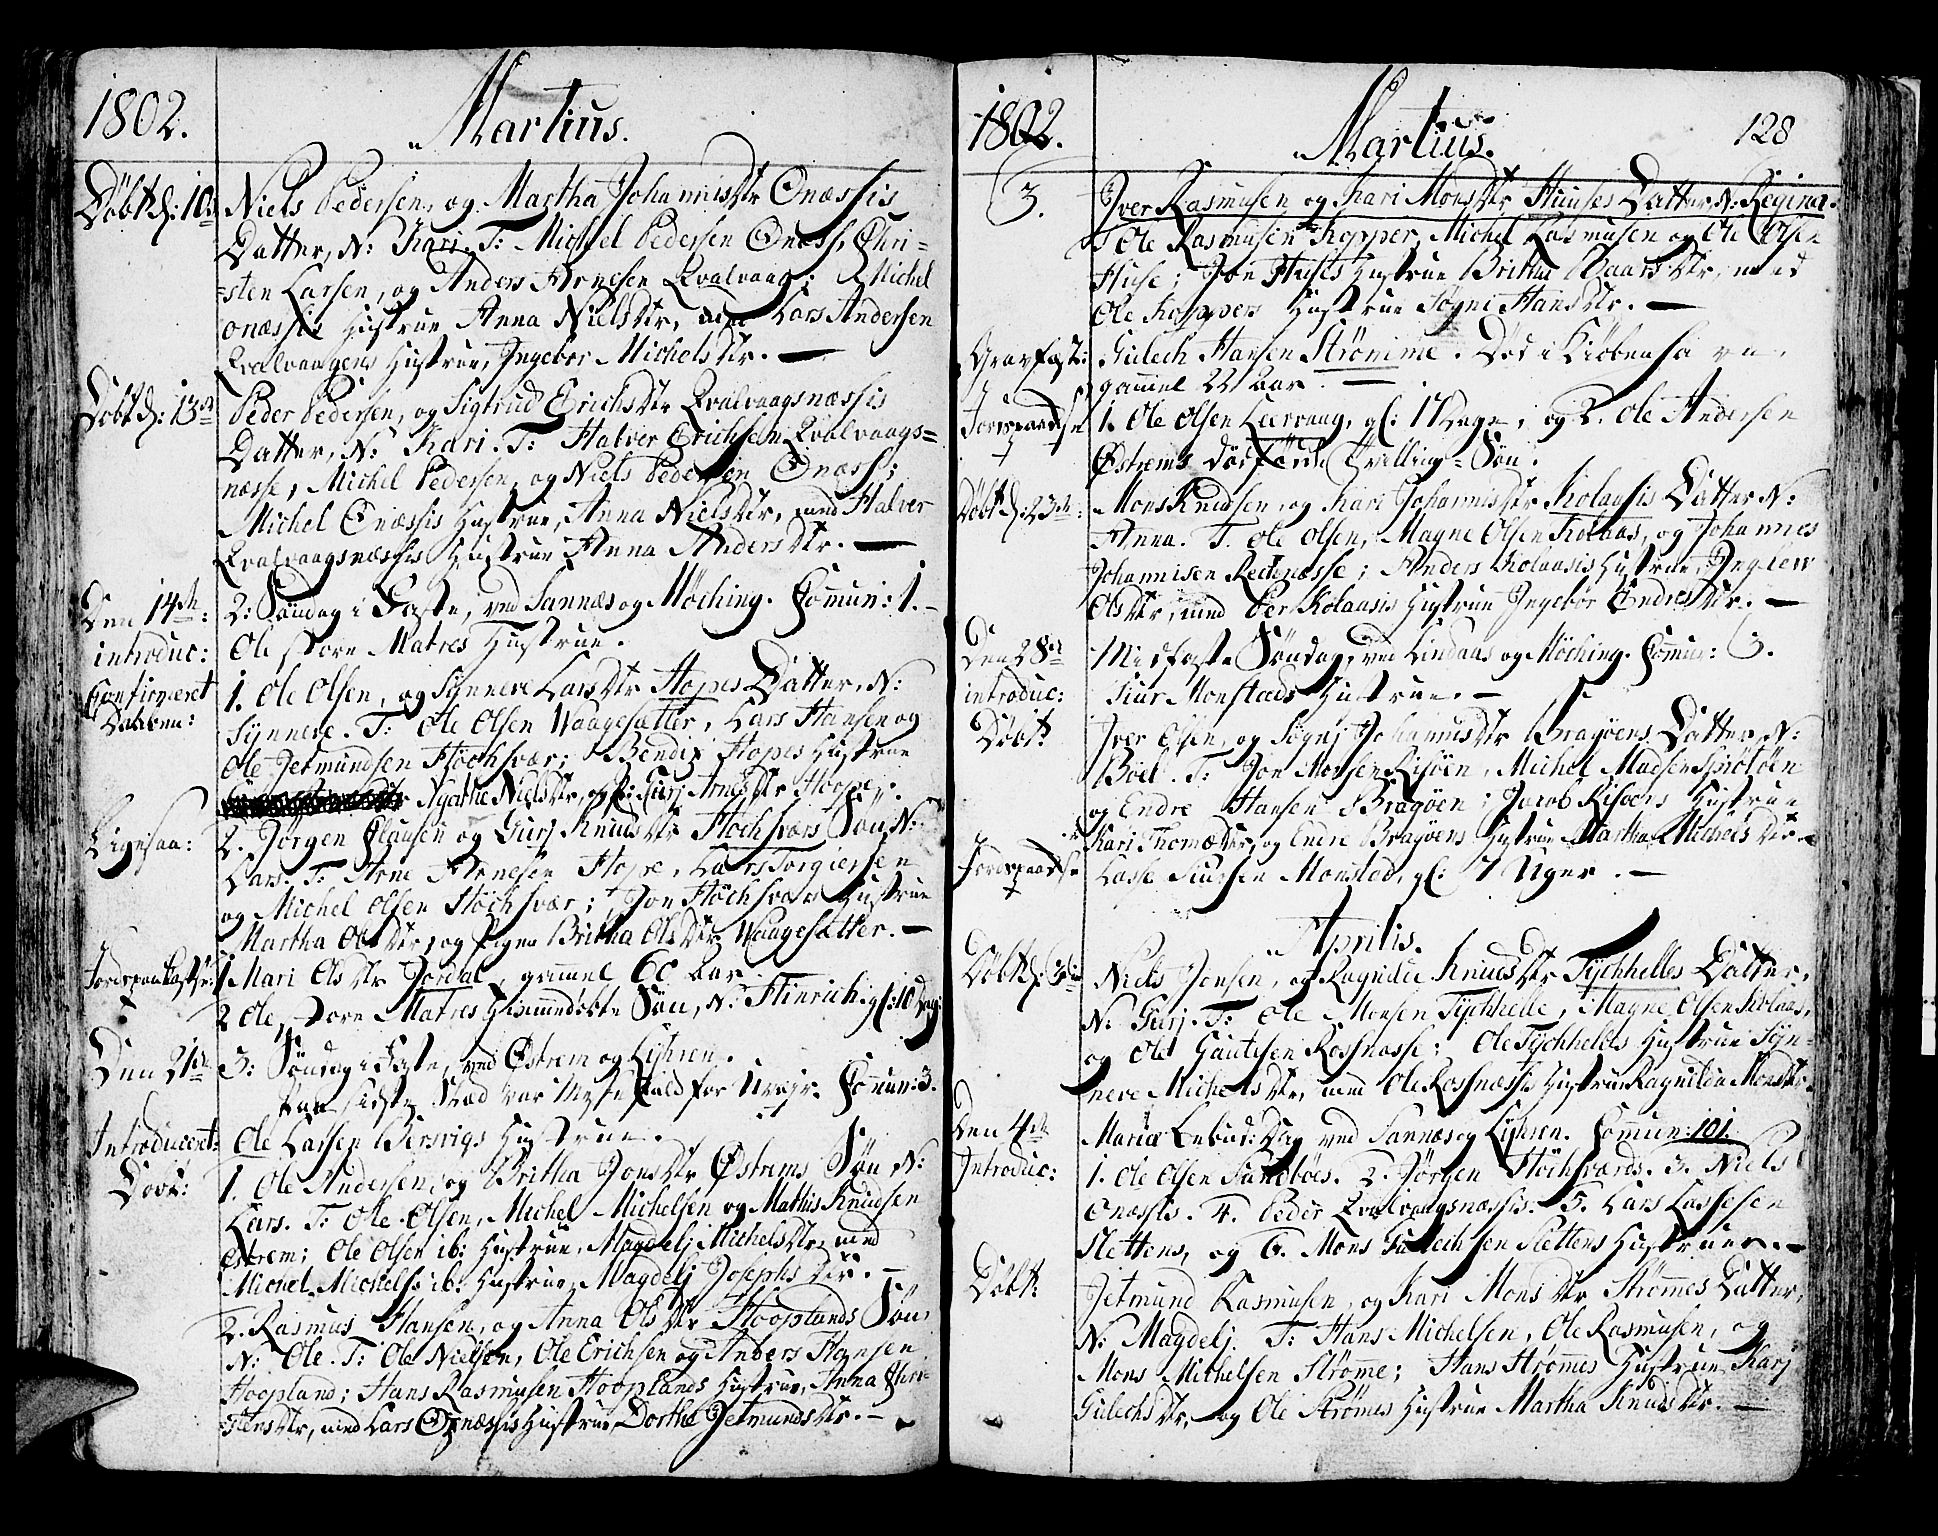 1802. Martius.
Döbt d: 10de Niels Pedersen, og Martha JohannisDtr Onæssis
Datter, N: Kari. T: Michel Pedersen Onæss, Chri-
sten Larsen, og Anders Arnesen Qvalvaag; Michel
onæssis Hustrue Anna NielsDtr, med Lars Andersen
Qvalvaagens Hustrue, Ingebor MichelsDtr. —
Döbt d: 13de Peder Pedersen, og Sigtrud ErichsDtr Qvalvaagsnæssis
Datter, N: Kari. T: Halver Erichsen Qvalvaags-
næsse, Michel Pedersen, og Niels Pedersen Onæss;
Michel Onæssis Hustrue, Anna NielsDtr, med Halver
Qvalvaagsnæssis Hustrue Anna AndersDtr. —
Den 14de: 2: Søndag i Faste, ved Sannæs og Möching. Comun: 1. -
introduc: Ole Matres Hustrue.
Confirmeret Daaben: 1. Ole Olsen, og Synneve LarsDtr Hopes Datter, N:
Synneve. T: Ole Olsen Waagesætter, Lars Hansen og
Ole Jetmundsen Höchsvær; Bendix Hopes Hustrue
Agathe NielsDtr, og P: Gurj ArnesDtr Hoope.
Ligesaa: 2. Jörgen Clausen og Gurj KnudsDtr Höchsværs Søn N:
Lars. T: Arne Arnesen Hope, Lars Torgiersen
og Michel Olsen Höchsvær; Jon Höchsværs Hustrue
Martha OlsDtr, og Pigen Britha OlsDtr Waagesætter. —
Jordspaakastse: 1 Mari OlsDtr Jordal, gammel 60 Aar
2 Ole Matres Hiemmedøbte Søn, N: Hinrich, gl: 10 Dag:
Den 21de 3: Søndag i Faste, ved Østrem og Lyhren.
Paa sidste Stæd var Messefald for Uvejr. Comun: 3.
Introduceret: Ole Larsen Bersvigs Hustrue.
Døbt: 1. Ole Andersen, og Britha JonsDtr Østrems Søn N:
Lars. T: Ole Olsen, Michel Michelsen og Mathis Knudsen
Østrem; Ole Olsen ib: Hustrue, Magdelj MichelsDtr, med
Michel Michels: ib: Hustrue, Magdelj JosephsDtr. —
2. Rasmus Hansen, og Anna OlsDtr Hooplands Søn,
N: Ole. T: Ole Nielsen, Ole Erichsen og Anders Hansen
Hoopland; Hans Rasmusen Hooplands Hustrue, Anna Chri-
stensDtr, med Lars Hustrue Dorthe JetmundsDtr. —
1802. Martius. 128
3. Iver Rasmusen og Kari MonsDtr Huuses Datter, N: Regina.
T Ole Rasmusen Kopper, Michel Rasmusen og Ole Olsen
Huse; Jon Huses Hustrue Britha BaarsDtr, med
Ole Koppers Hustrue Sögni HansDtr. —
Gravfæst: Gulech Hansen Strömme. Död i Kiöbenhavn,
gammel 22 Aar. —
Jordspaakastse 1. Ole Olsen Leervaag, gl: 17 Dage, og 2. Ole Andersen
Østrems Tvilling-Søn.
Döbt d: 23de: Mons Knudsen, og Kari JohannisDtr Kolaasis Datter N:
Anna. T. Ole Olsen, Magne Olsen Kolaas, og Johannes
Johannisen Rechnæsse; Anders Kolaasis Hustrue, Inglew
OlsDtr, med Per Kolaasis Hustrue Ingebor EndresDtr. —
Den 28de Midfaste Søndag, ved Lindaas og Möching. Comun: 3.
introduc: Siur Monstads Hustrue. —
Döbt: Iver Olsen, og Sögnj JohannisDtr Bragöens Datter, N:
Boel. T: Jon Monsen Risöen, Michel Madsen Sprötöen
og Endre Hansen Bragøen; Jacob Risøens Hustrue
Kari ThomæDtr, og Endre Bragøens Hustrue Martha MichelsDtr. —
Jordspaakastse Lasse Siursen Monsted, gl: 7 Uger. —
Aprilis.
Döbt d: 3de: Niels Jensen, og Ragnilde KnudsDtr Tychhelles Datter,
N: Gurj. T: Ole Monsen Tychhelle, Magne Olsen Kolaas,
og Ole Gautesen Rossnæsse; Ole Tychhelles Hustrue Syn-
neve MichelsDtr, med Ole Rossnæssis Hustrue Ragnilda MonsDtr.
Den 4de Mariæ Bebud: Dag ved Sannæs og Lyhren. Comun: 101.
Introduc: 1. Ole Olsen Sundböes. 2. Jörgen Höchsværds. 3. Niels
Onæssis. 4. Peder Qvalvaagsnæssis. 5. Lars Lassesen
Slettens, og 6. Mons Gullechsen Slettens Hustruer. —
Döbt: Jetmund Rasmusen, og Kari MonsDtr Strömes Datter,
N: Magdelj. T: Hans Michelsen, Ole Rasmusen, og
Mons Michelsen Strömme; Hans Strömmes Hustrue, Karj
GulechsDtr, og Ole Strömes Hustrue Martha KnudsDtr. —